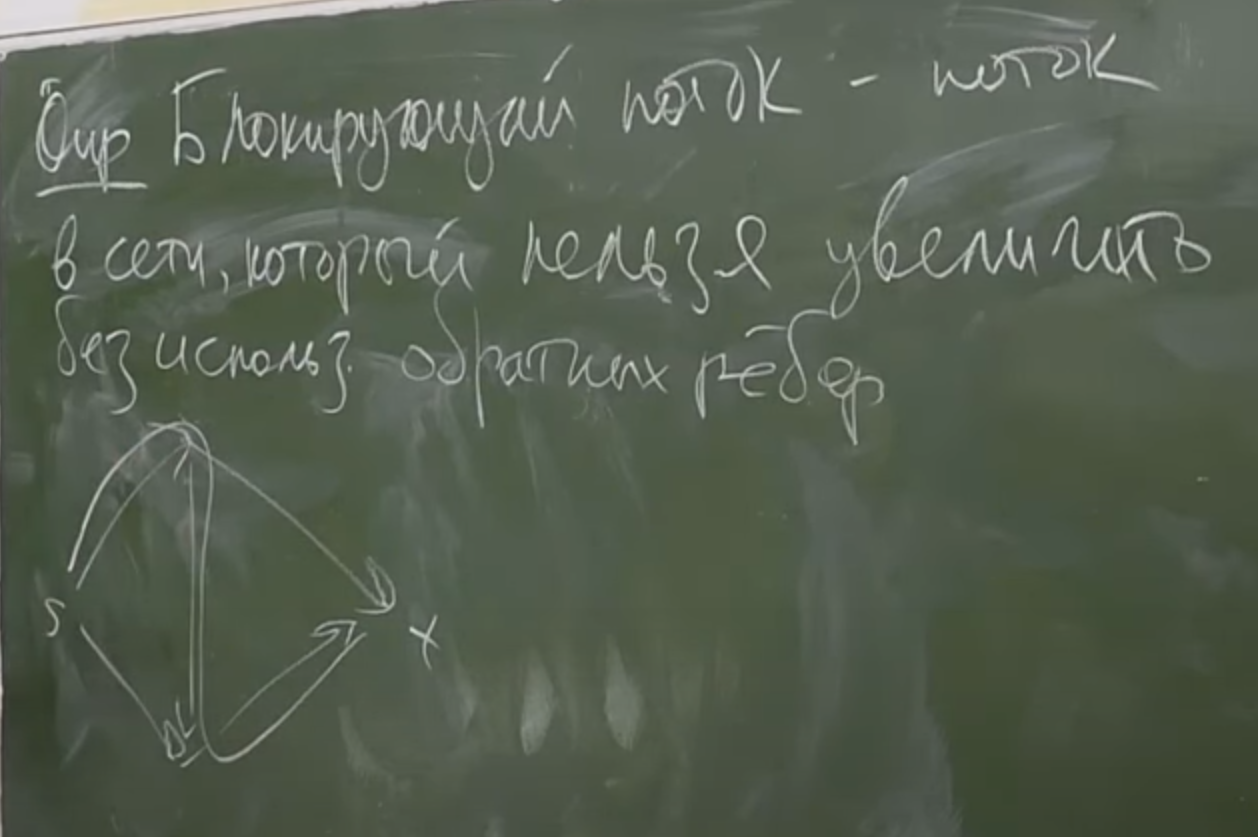 Опр Блокирующий поток - поток
в сети, который нельзя увеличить
без использ. обратных рёбер
S
t